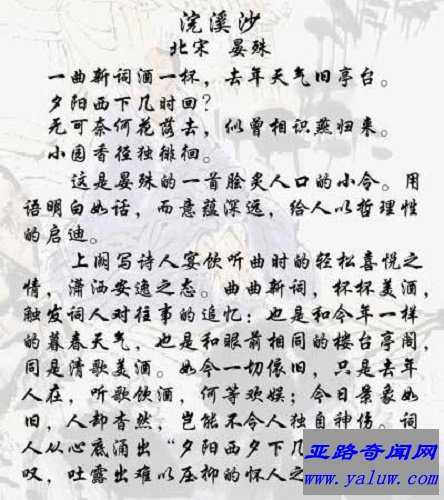 浣溪沙
北宋 晏殊
一曲新词酒一杯，去年天气旧亭台。
夕阳西下几时回？
无可奈何花落去，似曾相识燕归来。
小园香径独徘徊。
这是晏殊的一首脍炙人口的小令。用
语明白如话，而意蕴深远，给人以哲理性
的启迪。
上阕写诗人宴饮听曲时的轻松喜悦之
情，潇洒安逸之态。曲曲新词，杯杯美酒，
触发词人对往事的追忆：也是和今年一样
的暮春天气，也是和眼前相同的楼台亭阁，
同是清歌美酒。如今一切依旧，只是去年
人在，听歌饮酒，何等欢娱；今日景象如
旧，人却杳然，岂能不令人独自神伤。词
人从心底涌出“夕阳西夕下几
叹，吐露出难以压抑的怀人之
亚路奇闻网
www.yaluw.com